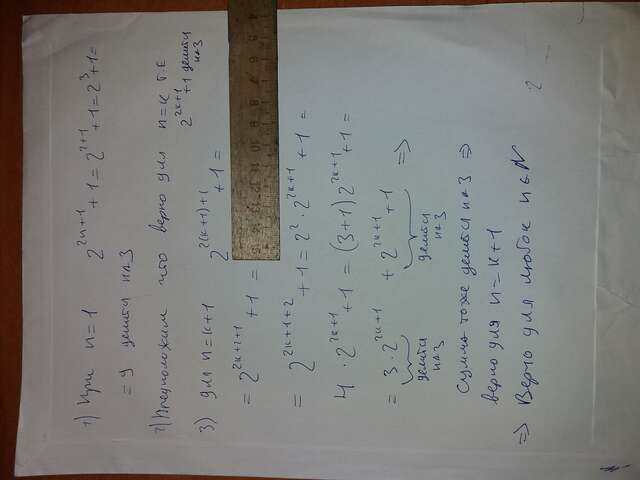 1) При n=1 2^{2n+1}+1=2^{2+1}+1=2^3+1=
=9 делится на 3
2) Предположим что верно для n=k т.е
2^{2k+1}+1 делится
на 3
3) для n=k+1 2^{2(k+1)+1}+1=
=2^{2k+2+1}+1=
=2^{2k+1+2}+1=2^2·2^{2k+1}+1=
4·2^{2k+1}+1=(3+1)2^{2k+1}+1=
=3·2^{2k+1}+2^{2k+1}+1 =>
делится на 3 делится на 3
Сумма тоже делится на 3 =>
верно для n=k+1
=> Верно для любок n∈N
2